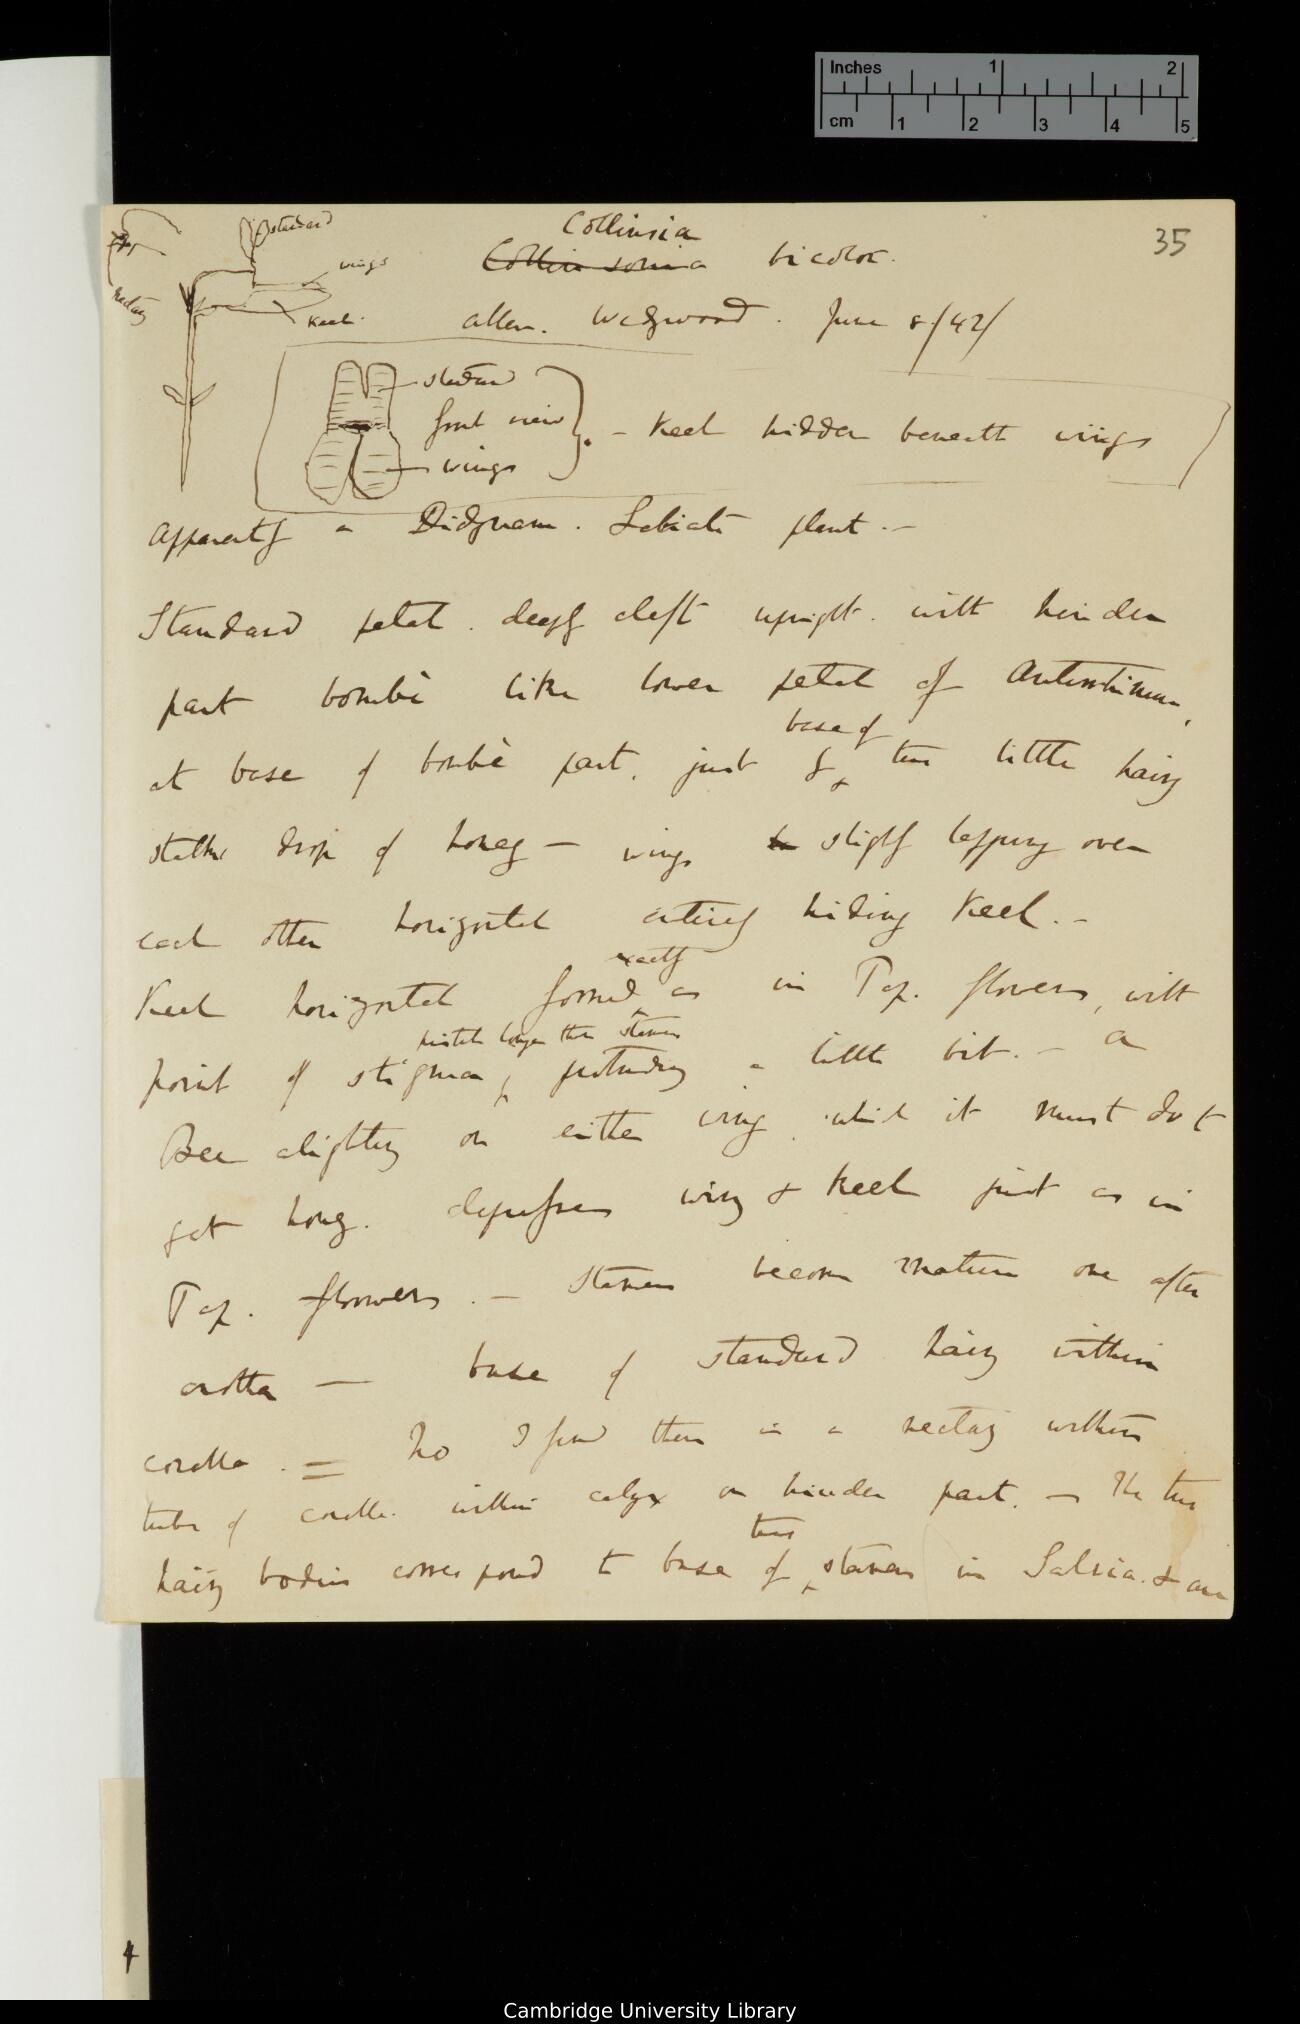 Inches 1 2
cm 1 2 3 4 5
35
standard
wings
nectary
Keel.
Collinsia
Collinsonia bicolor.
Allen. Wedgwood. June 8/42/
standard
front view
wings
– Keel hidden beneath wings
Apparently a Didynam. Labiate plant. –
Standard petal. deeply cleft upright. with hinder
part bombè like lower petal of Antirrhinum,
base of
at base of bombè part. just by two little hairy
stalks drop of honey – wings slightly lapping over
each other horizontal entirely hiding Keel. –
exactly
Keel horizontal formed as in Pap. flowers, with
pistil longer than stamens
point of stigma, protruding a little bit. – A
Bee alighting on either wing. which it must do to
get honey. depresses wing & keel just as in
Pap. flowers. – Stamens become mature one after
another — base of standard hairy within
corolla. = No I find there is a nectary within
tube of corolla. within calyx on hinder part. – The two
two
hairy bodies correspond to base of stamens in Salvia. & are
4
Cambridge University Library